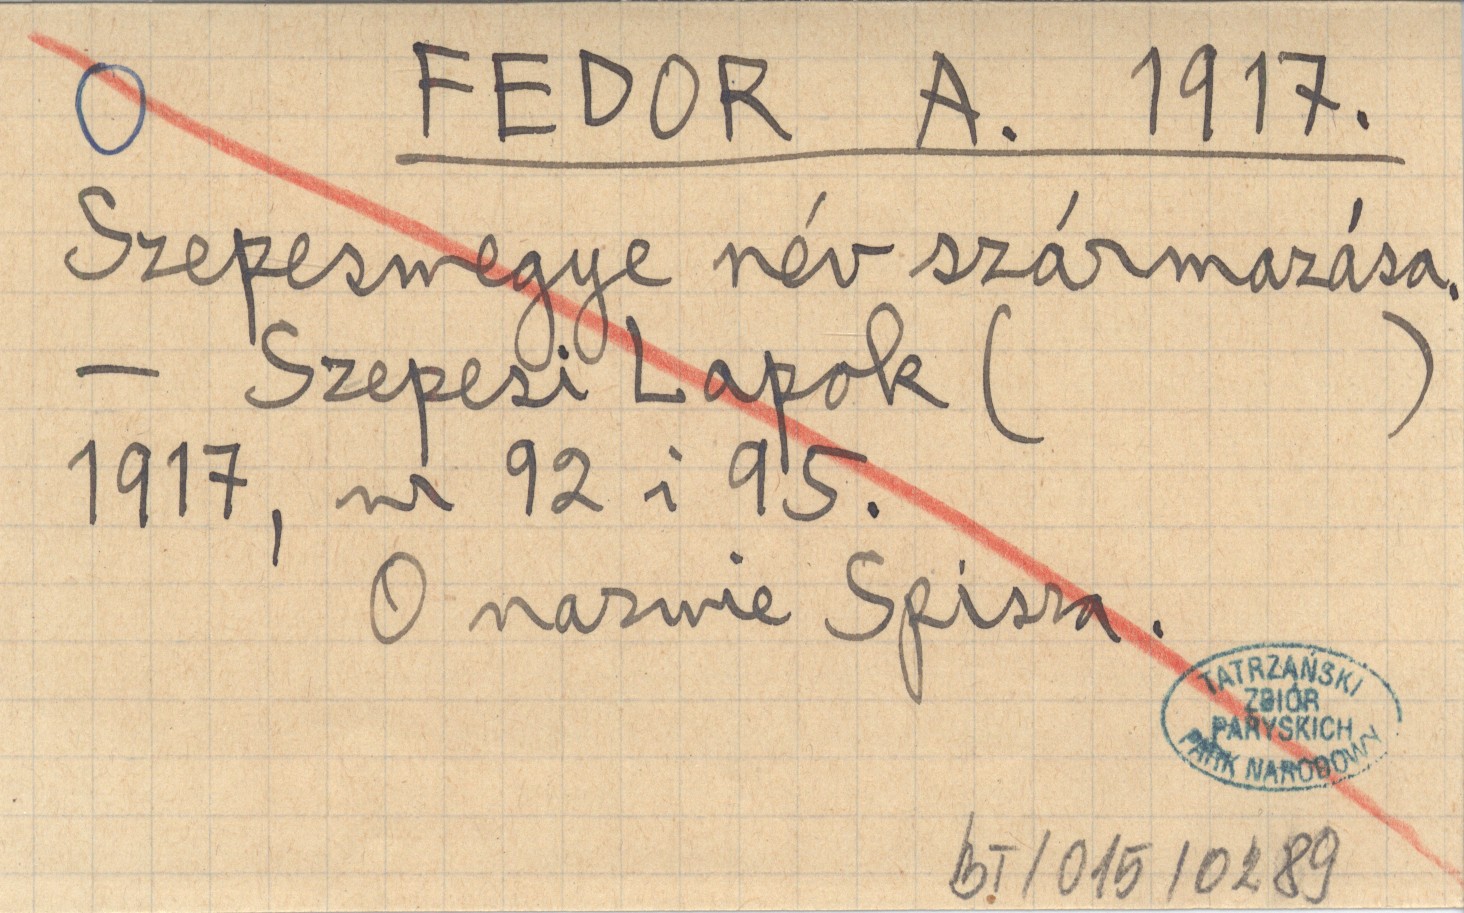 O FEDOR A. 1917.
Szepesmegye név származása.
— Szepesi Lapok ( )
1917, nr 92 i 95.
O nazwie Spisza.
TATRZAŃSKI
ZBIÓR
PARYSKICH
PARK NARODOWY
BT/015/0289